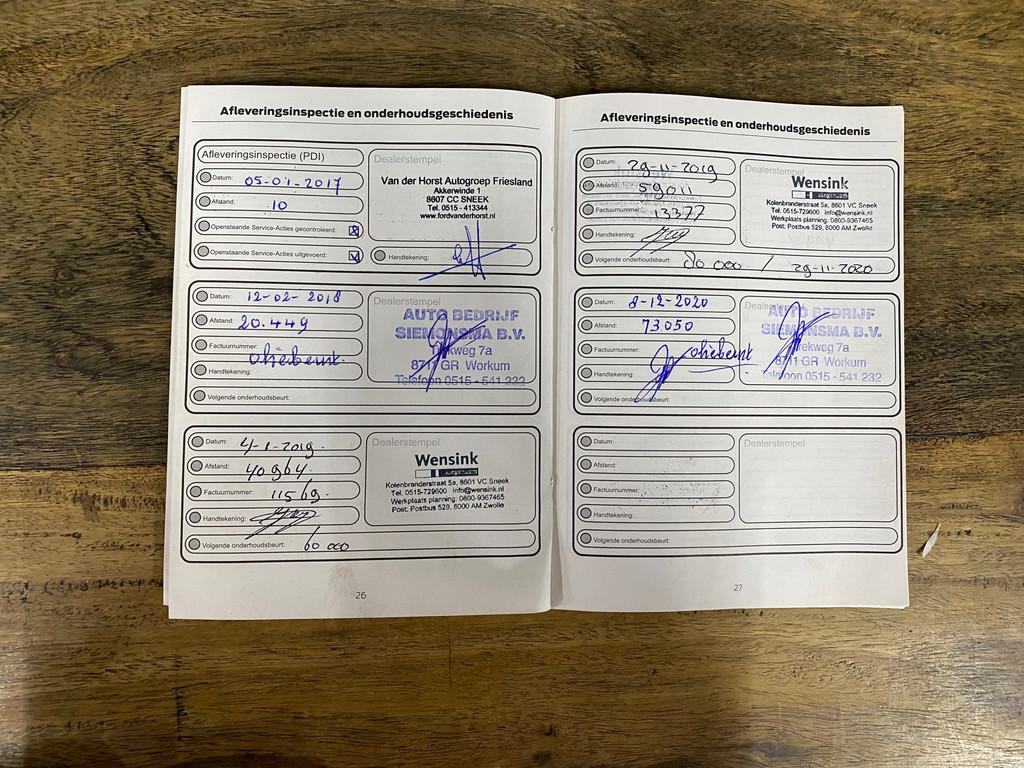 Afleveringsinspectie en onderhoudsgeschiedenis
Afleveringsinspectie (PDI)
Datum: 05-01-2017
Afstand: 10
Openstaande Service-Acties gecontroleerd:
Openstaande Service-Acties uitgevoerd:
Dealerstempel
Van der Horst Autogroep Friesland
Akkerwinde 1
8607 CC SNEEK
Tel. 0515 - 413344
www.fordvanderhorst.nl
Handtekening:
Datum: 12-02-2018
Afstand: 20.449
Factuurnummer:
oliebeurt
Handtekening:
Volgende onderhoudsbeurt:
Dealerstempel
AUTO BEDRIJF
SIEMONSMA B.V.
8711 GR Workum
Telefoon 0515 - 541 232
Datum: 4-1-2019
Afstand: 40964
Factuurnummer: 11569
Handtekening:
Volgende onderhoudsbeurt: 60 000
Dealerstempel
Wensink
Kolenbranderstraat 5a, 8601 VC Sneek
Tel. 0515-729600 info@wensink.nl
Werkplaats planning: 0800-9367465
Post: Postbus 529, 8000 AM Zwolle
26
Afleveringsinspectie en onderhoudsgeschiedenis
Datum: 29-11-2019
Afstand: 59011
Factuurnummer: 13377
Handtekening:
Volgende onderhoudsbeurt: 80 000 / 29-11-2020
Dealerstempel
Wensink
Kolenbranderstraat 5a, 8601 VC Sneek
Tel. 0515-729600 info@wensink.nl
Werkplaats planning: 0800-9367465
Post: Postbus 529, 8000 AM Zwolle
Datum: 8-12-2020
Afstand: 73050
Factuurnummer: oliebeurt
Handtekening:
Volgende onderhoudsbeurt:
Dealerstempel
AUTO BEDRIJF
SIEMONSMA B.V.
8711 GR Workum
Telefoon 0515 - 541 232
Datum:
Afstand:
Factuurnummer:
Handtekening:
Volgende onderhoudsbeurt:
Dealerstempel
27